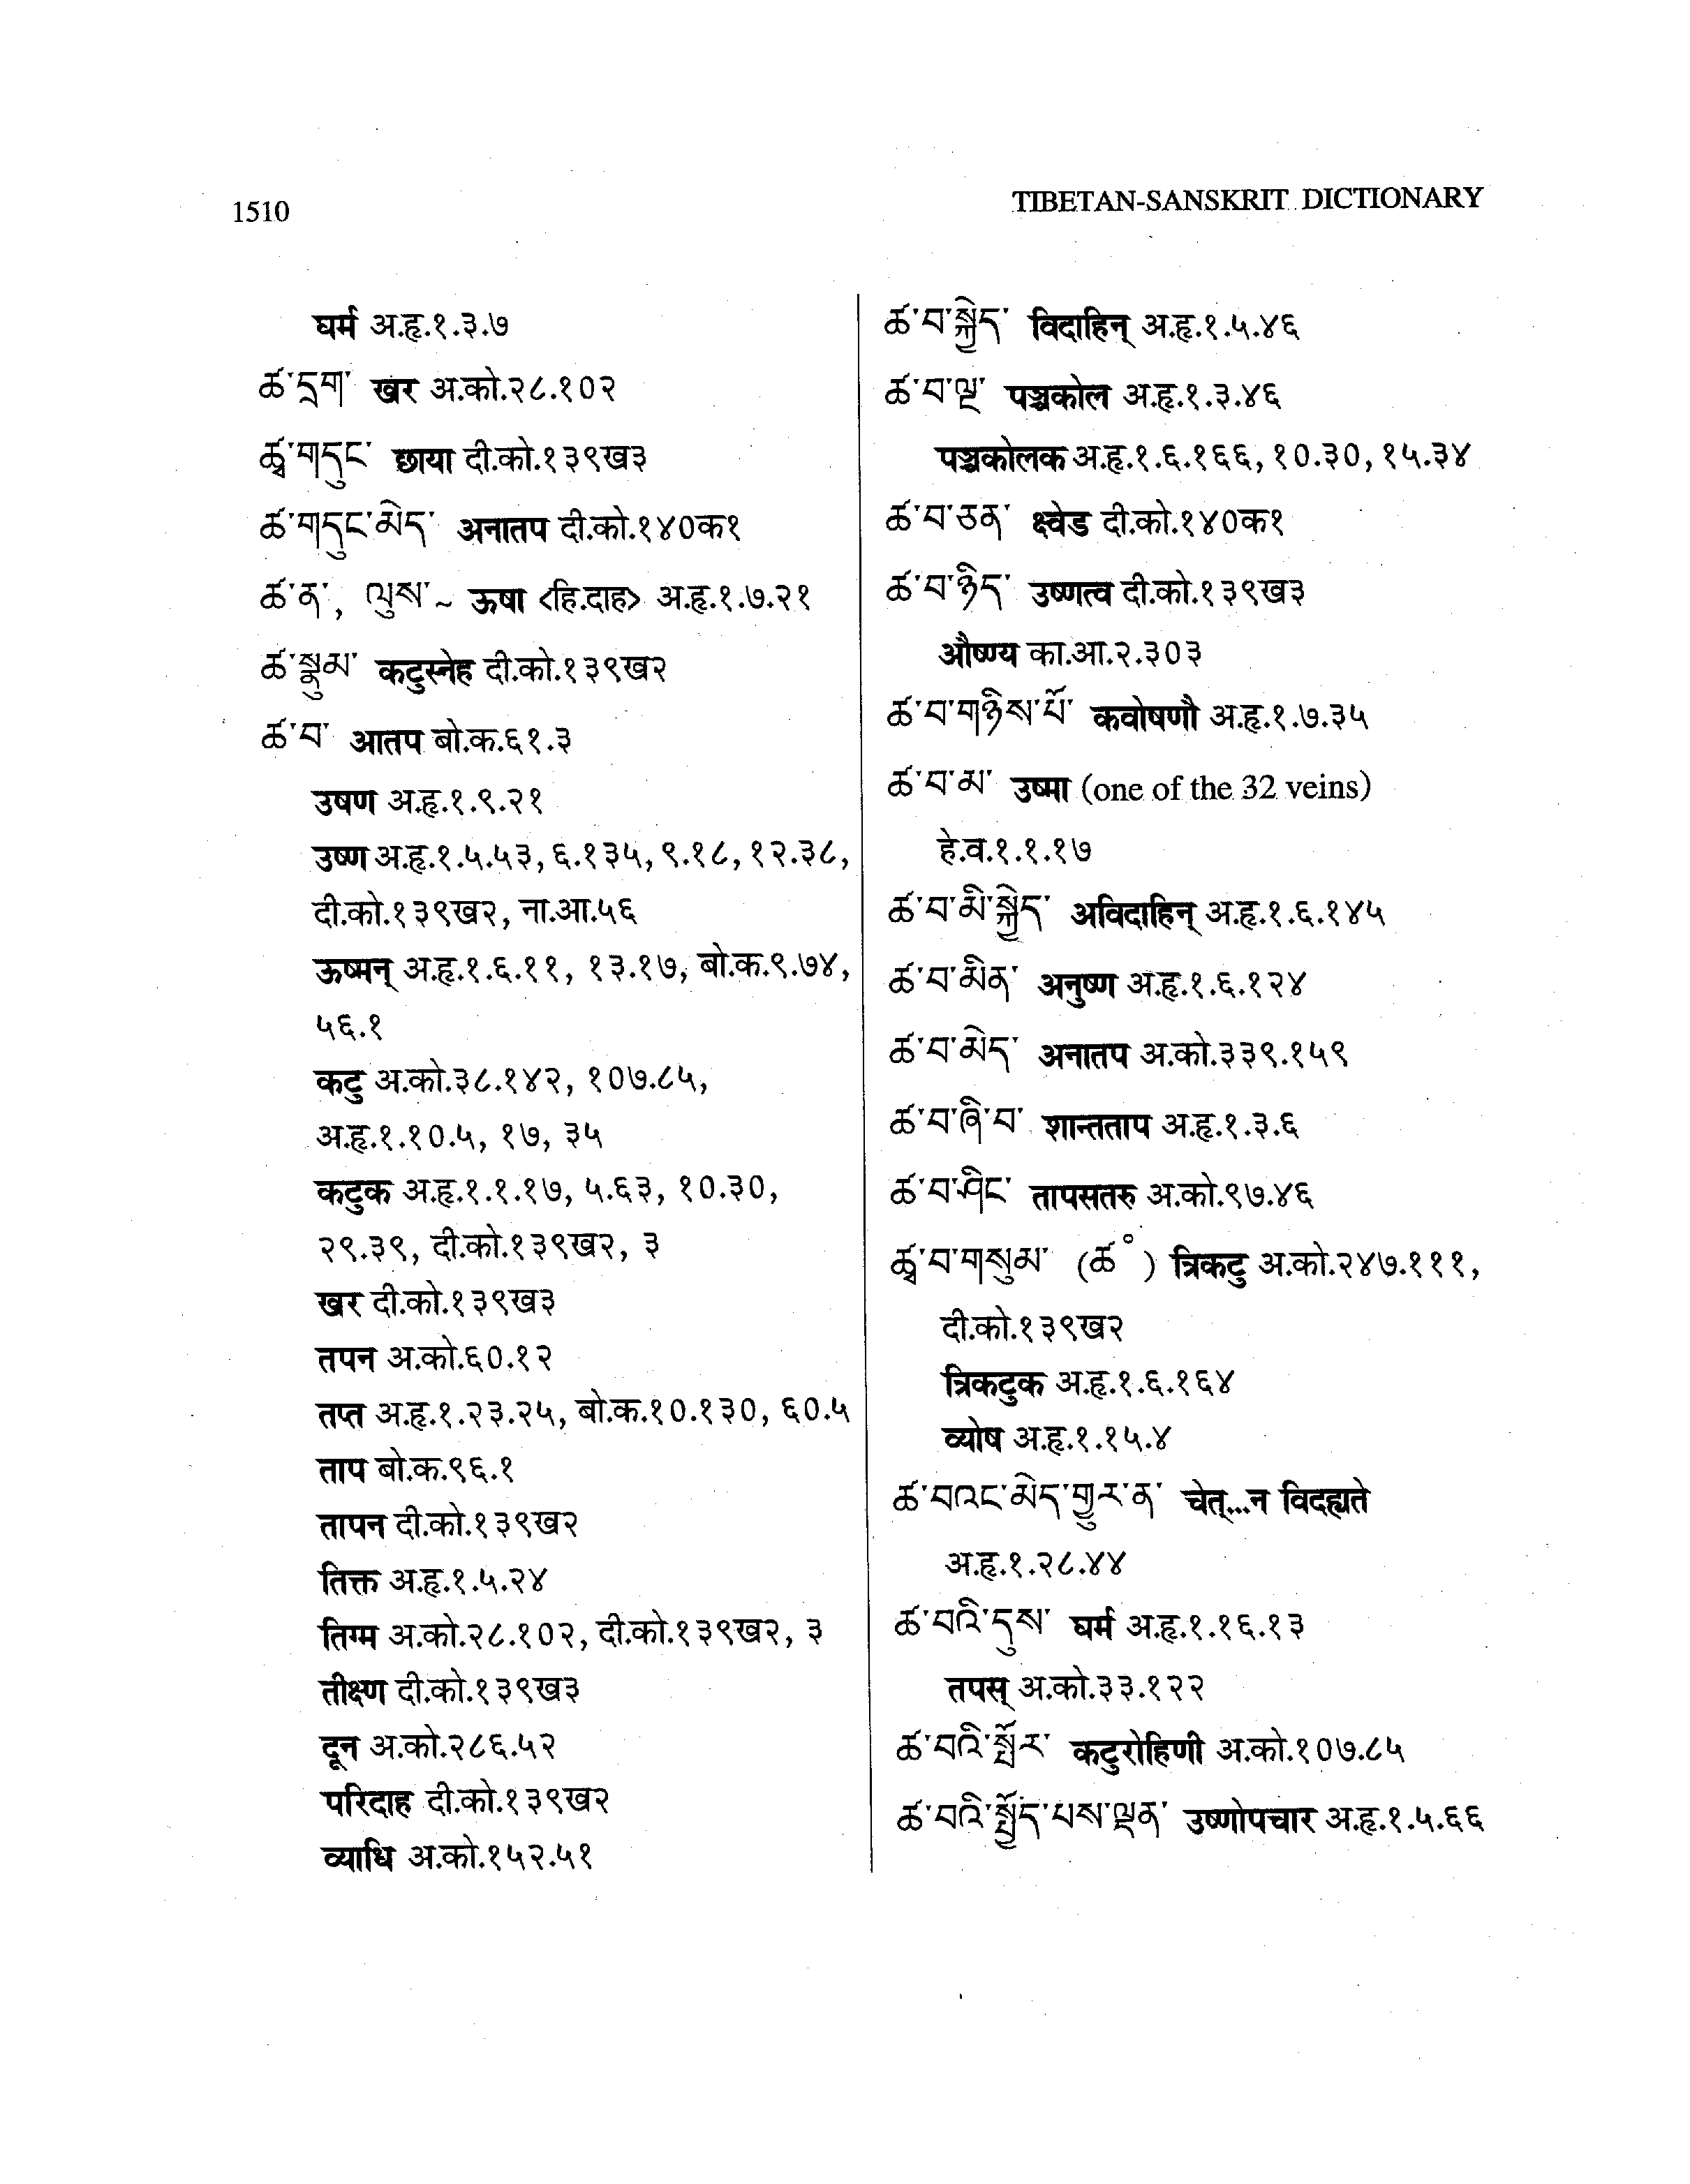 1510
TIBETAN-SANSKRIT DICTIONARY
घर्म अ.हृ.१.३.७
ཚ་དྲག་ खर अ.को.२८.१०२
ཚྭ་གདུང་ छाया दी.को.१३९ख३
ཚ་གདུང་མེད་ अनातप दी.को.१४०क१
ཚ་ན་, ལུས་~ ऊषा <हि.दाह> अ.हृ.१.७.२१
ཚ་སྣུམ་ कटुस्नेह दी.को.१३९ख२
ཚ་བ་ आतप बो.क.६१.३
उषण अ.हृ.१.९.२१
उष्ण अ.हृ.१.५.५३, ६.१३५, ९.१८, १२.३८,
दी.को.१३९ख२, ना.आ.५६
ऊष्मन् अ.हृ.१.६.११, १३.१७, बो.क.९.७४,
५६.१
कटु अ.को.३८.१४२, १०७.८५,
अ.हृ.१.१०.५, १७, ३५
कटुक अ.हृ.१.१.१७, ५.६३, १०.३०,
२९.३९, दी.को.१३९ख२, ३
खर दी.को.१३९ख३
तपन अ.को.६०.१२
तप्त अ.हृ.१.२३.२५, बो.क.१०.१३०, ६०.५
ताप बो.क.९६.१
तापन दी.को.१३९ख२
तिक्त अ.हृ.१.५.२४
तिग्म अ.को.२८.१०२, दी.को.१३९ख२, ३
तीक्ष्ण दी.को.१३९ख३
दून अ.को.२८६.५२
परिदाह दी.को.१३९ख२
व्याधि अ.को.१५२.५१
ཚ་བ་སྐྱེད་ विदाहिन् अ.हृ.१.५.४६
ཚ་བ་ལྔ་ पञ्चकोल अ.हृ.१.३.४६
पञ्चकोलक अ.हृ.१.६.१६६, १०.३०, १५.३४
ཚ་བ་ཅན་ क्ष्वेड दी.को.१४०क१
ཚ་བ་ཉིད་ उष्णत्व दी.को.१३९ख३
औष्ण्य का.आ.२.३०३
ཚ་བ་གཉིས་པོ་ कवोषणौ अ.हृ.१.७.३५
ཚ་བ་མ་ उष्मा (one of the 32 veins)
हे.व.१.१.१७
ཚ་བ་མི་སྐྱེད་ अविदाहिन् अ.हृ.१.६.१४५
ཚ་བ་མིན་ अनुष्ण अ.हृ.१.६.१२४
ཚ་བ་མེད་ अनातप अ.को.३३९.१५९
ཚ་བ་ཞི་བ་ शान्तताप अ.हृ.१.३.६
ཚ་བ་ཤིང་ तापसतरु अ.को.९७.४६
ཚྭ་བ་གསུམ་ (ཚ°) त्रिकटु अ.को.२४७.१११,
दी.को.१३९ख२
त्रिकटुक अ.हृ.१.६.१६४
व्योष अ.हृ.१.१५.४
ཚ་བའང་མེད་གྱུར་ན་ चेत्...न विदह्यते
अ.हृ.१.२८.४४
ཚ་བའི་དུས་ घर्म अ.हृ.१.१६.१३
तपस् अ.को.३३.१२२
ཚ་བའི་སྤོར་ कटुरोहिणी अ.को.१०७.८५
ཚ་བའི་སྤྱོད་པས་ལྡན་ उष्णोपचार अ.हृ.१.५.६६